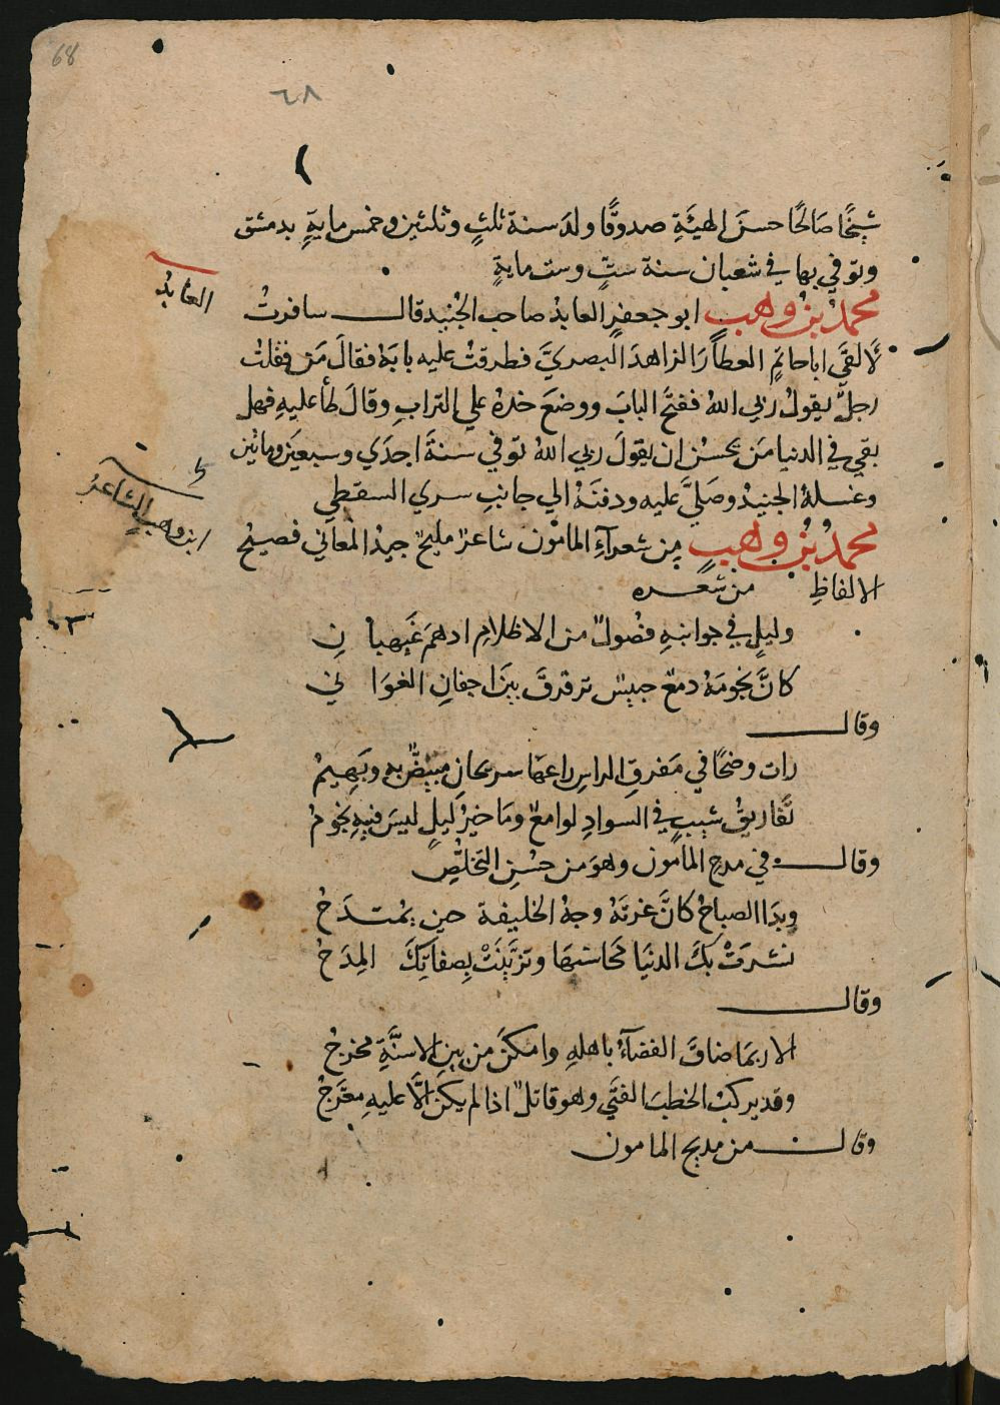 68
٦٨
شيخًا صَالحًا حسنَ الهيئَةِ صدوقًا ولدَ سنة ثلثٍ وثلثين وخمس مايةٍ بدمشق
وتوفي بها في شعبان سنة ستٍّ وست مايةٍ
العابدُ
محمدُ بنُ وهبٍ ابو جعفرٍ العابدُ صاحب الجُنيد قال سافرتُ
لَالقَي اباحاتمٍ العطارَ الزاهدَ البصريَّ فطرقتُ عليه بابَهُ فقالَ مَن فقلتُ
رجلٌ يقولُ ربي اللهُ ففتحَ البابَ ووضعَ خدهُ علي الترابِ وقالَ طأ عليهِ فهل
بقي في الدنيا مَن يحسُن ان يقولَ ربي اللهُ توفي سنةَ احدَي وسبعينَ ومائتين
وغسلهُ الجنيدُ وصَليَّ عليه ودفنَهُ الي جانبِ سري السقطي
ابن وهبٍ الشاعرُ
محمدُ بنُ وهبٍ مِن شعرآءِ المامُون شاعرٌ مليحٌ جيدُ المعاني فصيحُ
الالفاظِ من شعره
وليلٍ في جوانبهِ فضُولٌ من الاظلامِ ادهمَ غَيهبانِ
كانَّ نجُومَهُ دمعٌ حبيسٌ ترقرقَ بينَ اجفانِ الغوَاني
وقال
رات وضحًا في مَفرقِ الراسِ راعهَا سريحانِ مبيضٌّ بهِ وبَهيمُ
تَفاريقُ شيبٍ في السوادِ لوامعٌ ومَا خيرُ ليلٍ ليسَ فيهِ نجومُ
وقال في مدحِ المامون وهوَ من حسُنِ التخلُّصِ
وبدَا الصباحُ كانَّ غرتَهُ وجهُ الخليفة حين يمُتدَحُ
نشرتْ بكَ الدنيَا مَحاسنهَا وتزيَّنتْ بصفاتِكَ المِدَحُ
وقال
الا ربمَا ضاقَ الفضآءُ باهلهِ وامكنَ من بينِ الاسنَّةِ مخرجُ
وقد يركبُ الخطبَ الفتَي وهو قاتلٌ اذا لم يكن الَّا عليهِ معَّرجُ
وقال من مديح المامون